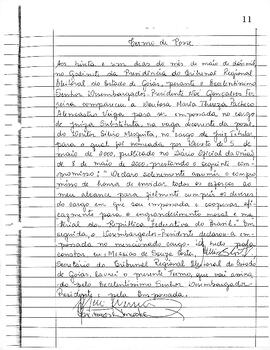 11
Termo de Posse
Aos trinta e um dias do mês de maio de dois mil,
no Gabinete da Presidência do Tribunal Regional
Eleitoral do Estado de Goiás, perante o Excelentíssimo
Senhor Desembargador Presidente Noé Gonçalves Fer-
reira compareceu a Doutora Maria Thereza Pacheco
Alencastro Veiga para ser empossada no cargo
de Juíza Substituta, na vaga decorrente da posse
do Weiler Silvio Mesquita, no cargo de Juiz Titular,
para o qual foi nomeada por Decreto de 5 de
maio de 2000, publicado no Diário Oficial da União
8 de maio de 2000, prestando o seguinte com-
promisso: "Declaro solenemente assumir o compro-
misso de honra de envidar todos os esforços ao
meu alcance para fielmente cumprir os deveres
do cargo em que sou empossada e cooperar efi-
cazmente para o engrandecimento moral e ma-
terial da República Federativa do Brasil". Em
seguida, o Desembargador-Presidente declarou-a em-
possada no mencionado cargo. E tudo para
constar eu
Secretário do Tribunal Regional Eleitoral do Estado
de Goiás lavrei o presente Termo, que vai assina-
do pelo Excelentíssimo Senhor Desembargador
Presidente e pela Empossada.